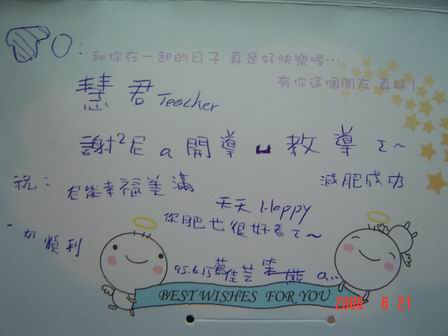 TO:
和你在一起的日子 真是好快樂喔…
有你這個朋友 真好！
慧君 Teacher
謝²E a 開導 教導 Σ~
祝：
您能幸福美滿
減肥成功
天天 Happy
你肥也很好看了~
一切順利
95.6.15 蔡佳芸 筆
BEST WISHES FOR YOU
2006 6 21